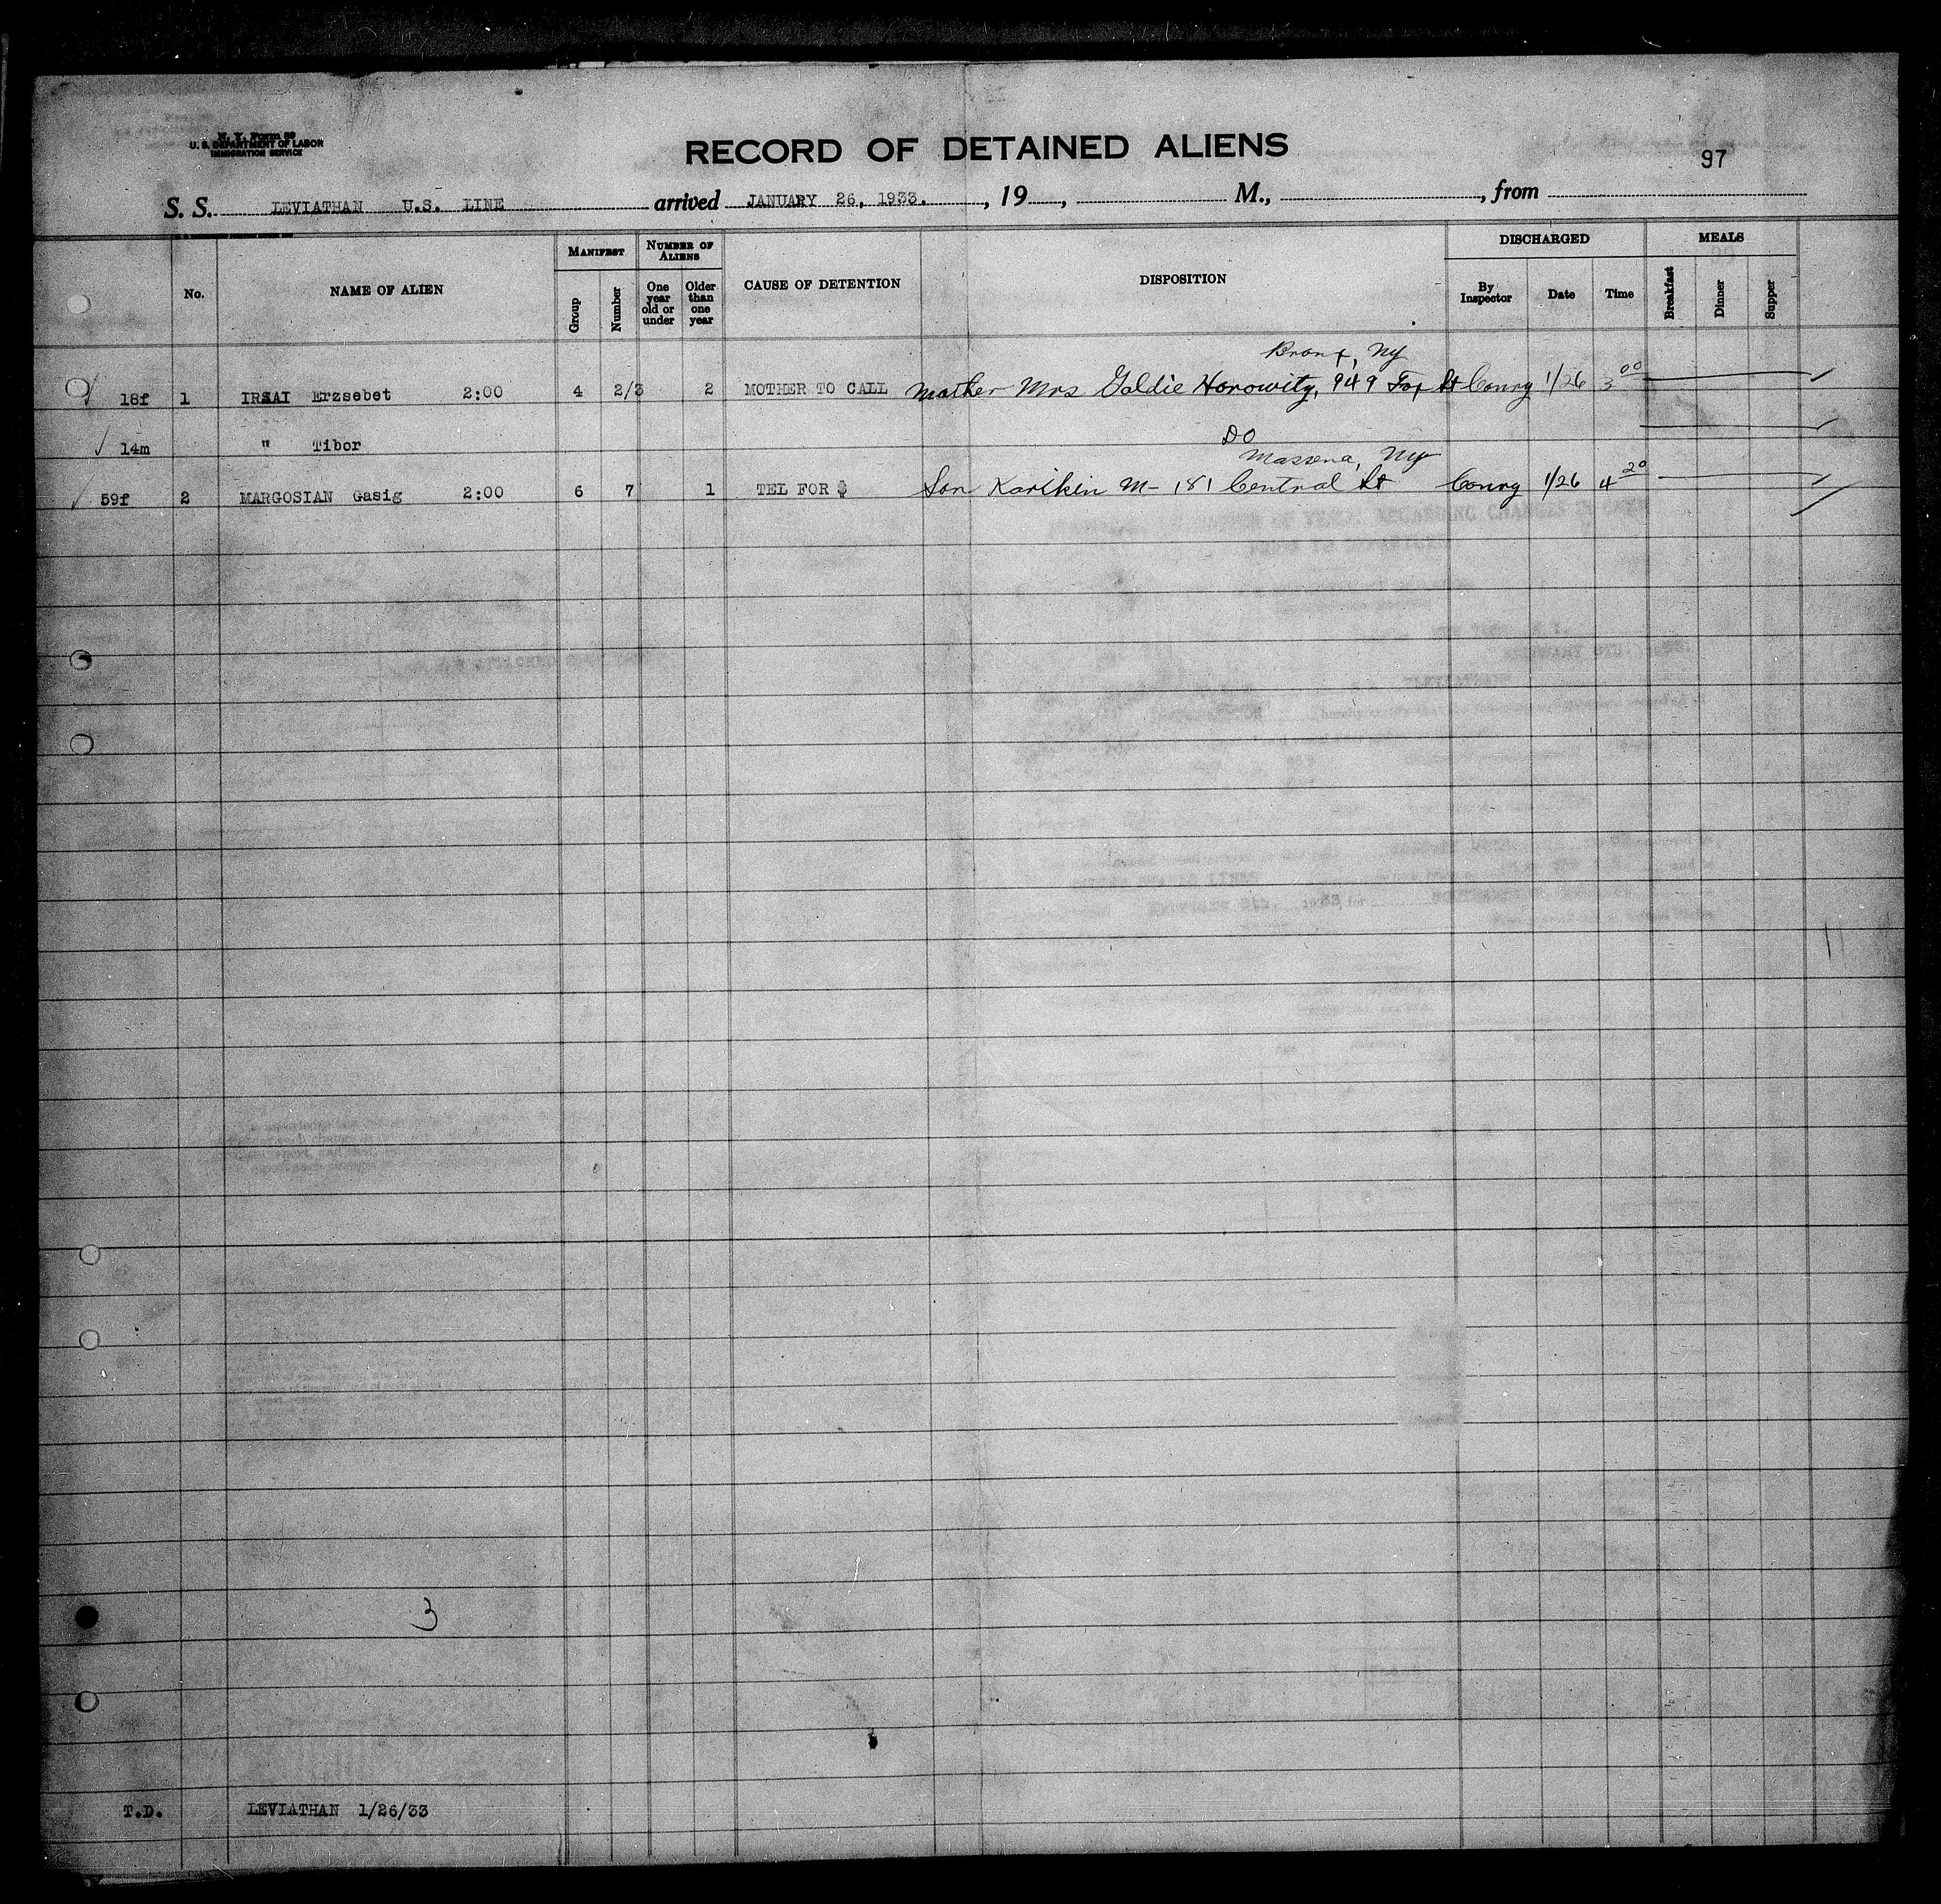 N. Y. Form 99
U. S. DEPARTMENT OF LABOR
IMMIGRATION SERVICE
RECORD OF DETAINED ALIENS
97
S. S. LEVIATHAN U.S. LINE arrived JANUARY 26, 1933. , 19 , M., , from
No. NAME OF ALIEN MANIFEST Group Number NUMBER OF ALIENS One year old or under Older than one year CAUSE OF DETENTION DISPOSITION DISCHARGED By Inspector Date Time MEALS Breakfast Dinner Supper
Bronx, NY
18f 1 IRSAI Erzsebet 2:00 4 2/3 2 MOTHER TO CALL Mother Mrs Goldie Horowitz, 949 Fox St Conry 1/26 3 00
14m " Tibor DO
Massena, NY
59f 2 MARGOSIAN Gasig 2:00 6 7 1 TEL FOR $ Son Karikin M- 181 Central St Conry 1/26 4 20
3
T.D. LEVIATHAN 1/26/33